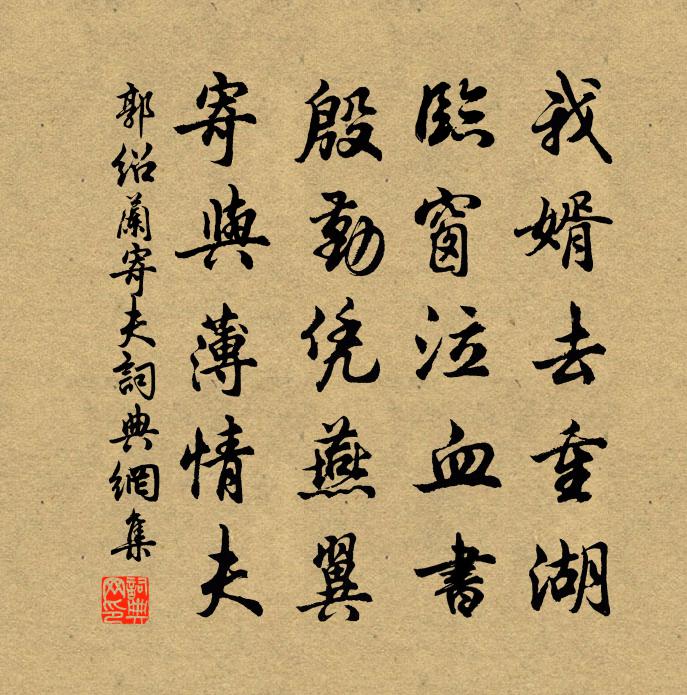 我婿去重湖
臨窗泣血書
殷勤凭燕翼
寄與薄情夫
郭紹蘭寄夫詞典網集
詞典网印